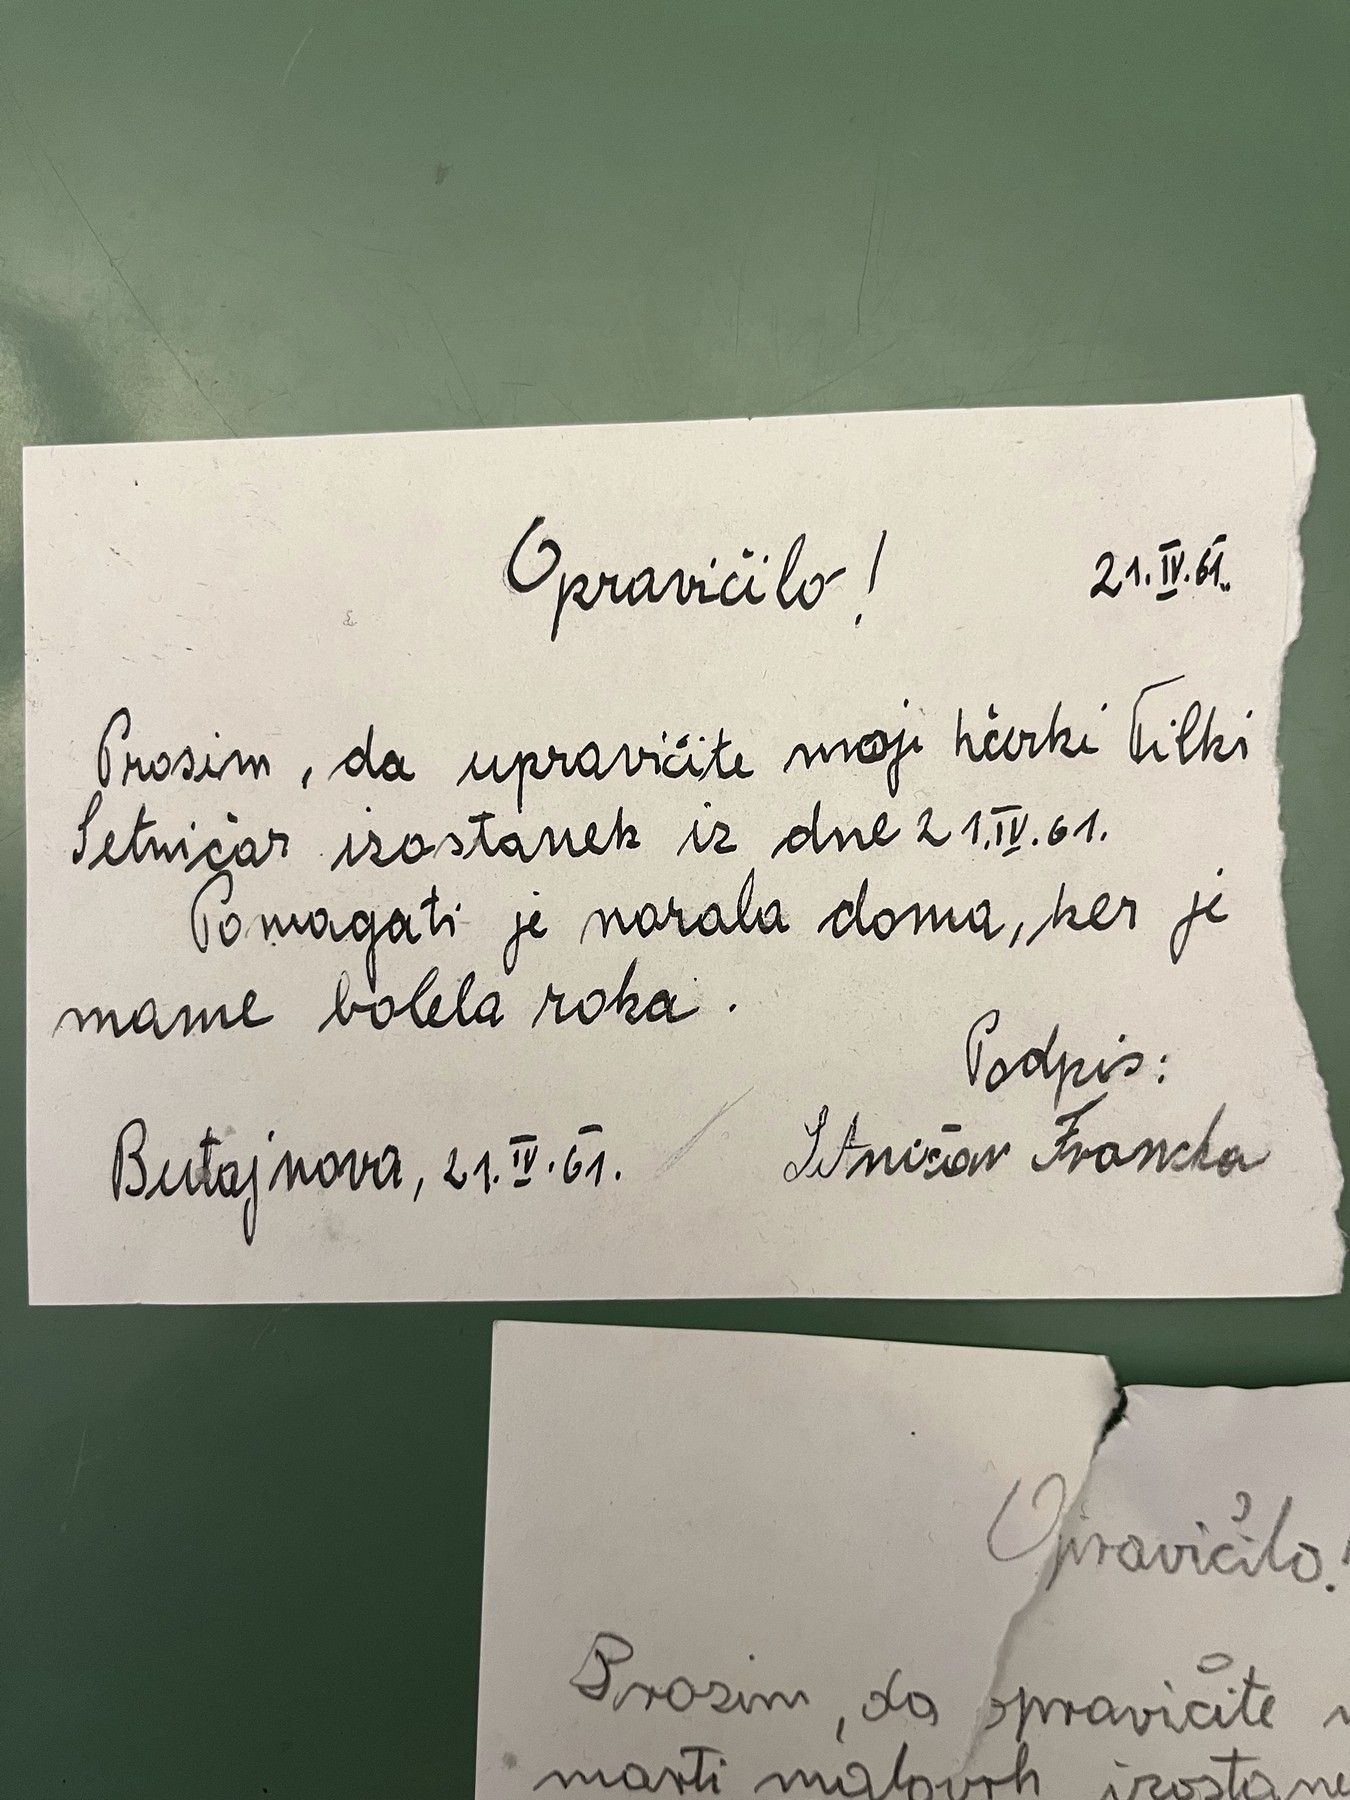 Opravičilo!
21.IV.61.
Prosim, da upravičite moji hčerki Tilki
Setničar izostanek iz dne 21.IV.61.
Pomagati je morala doma, ker je
mame bolela roka.
Podpis:
Butajnova, 21.IV.61.
Setničar Francka
Opravičilo!
Prosim, da opravičite
marti malovrh izostane